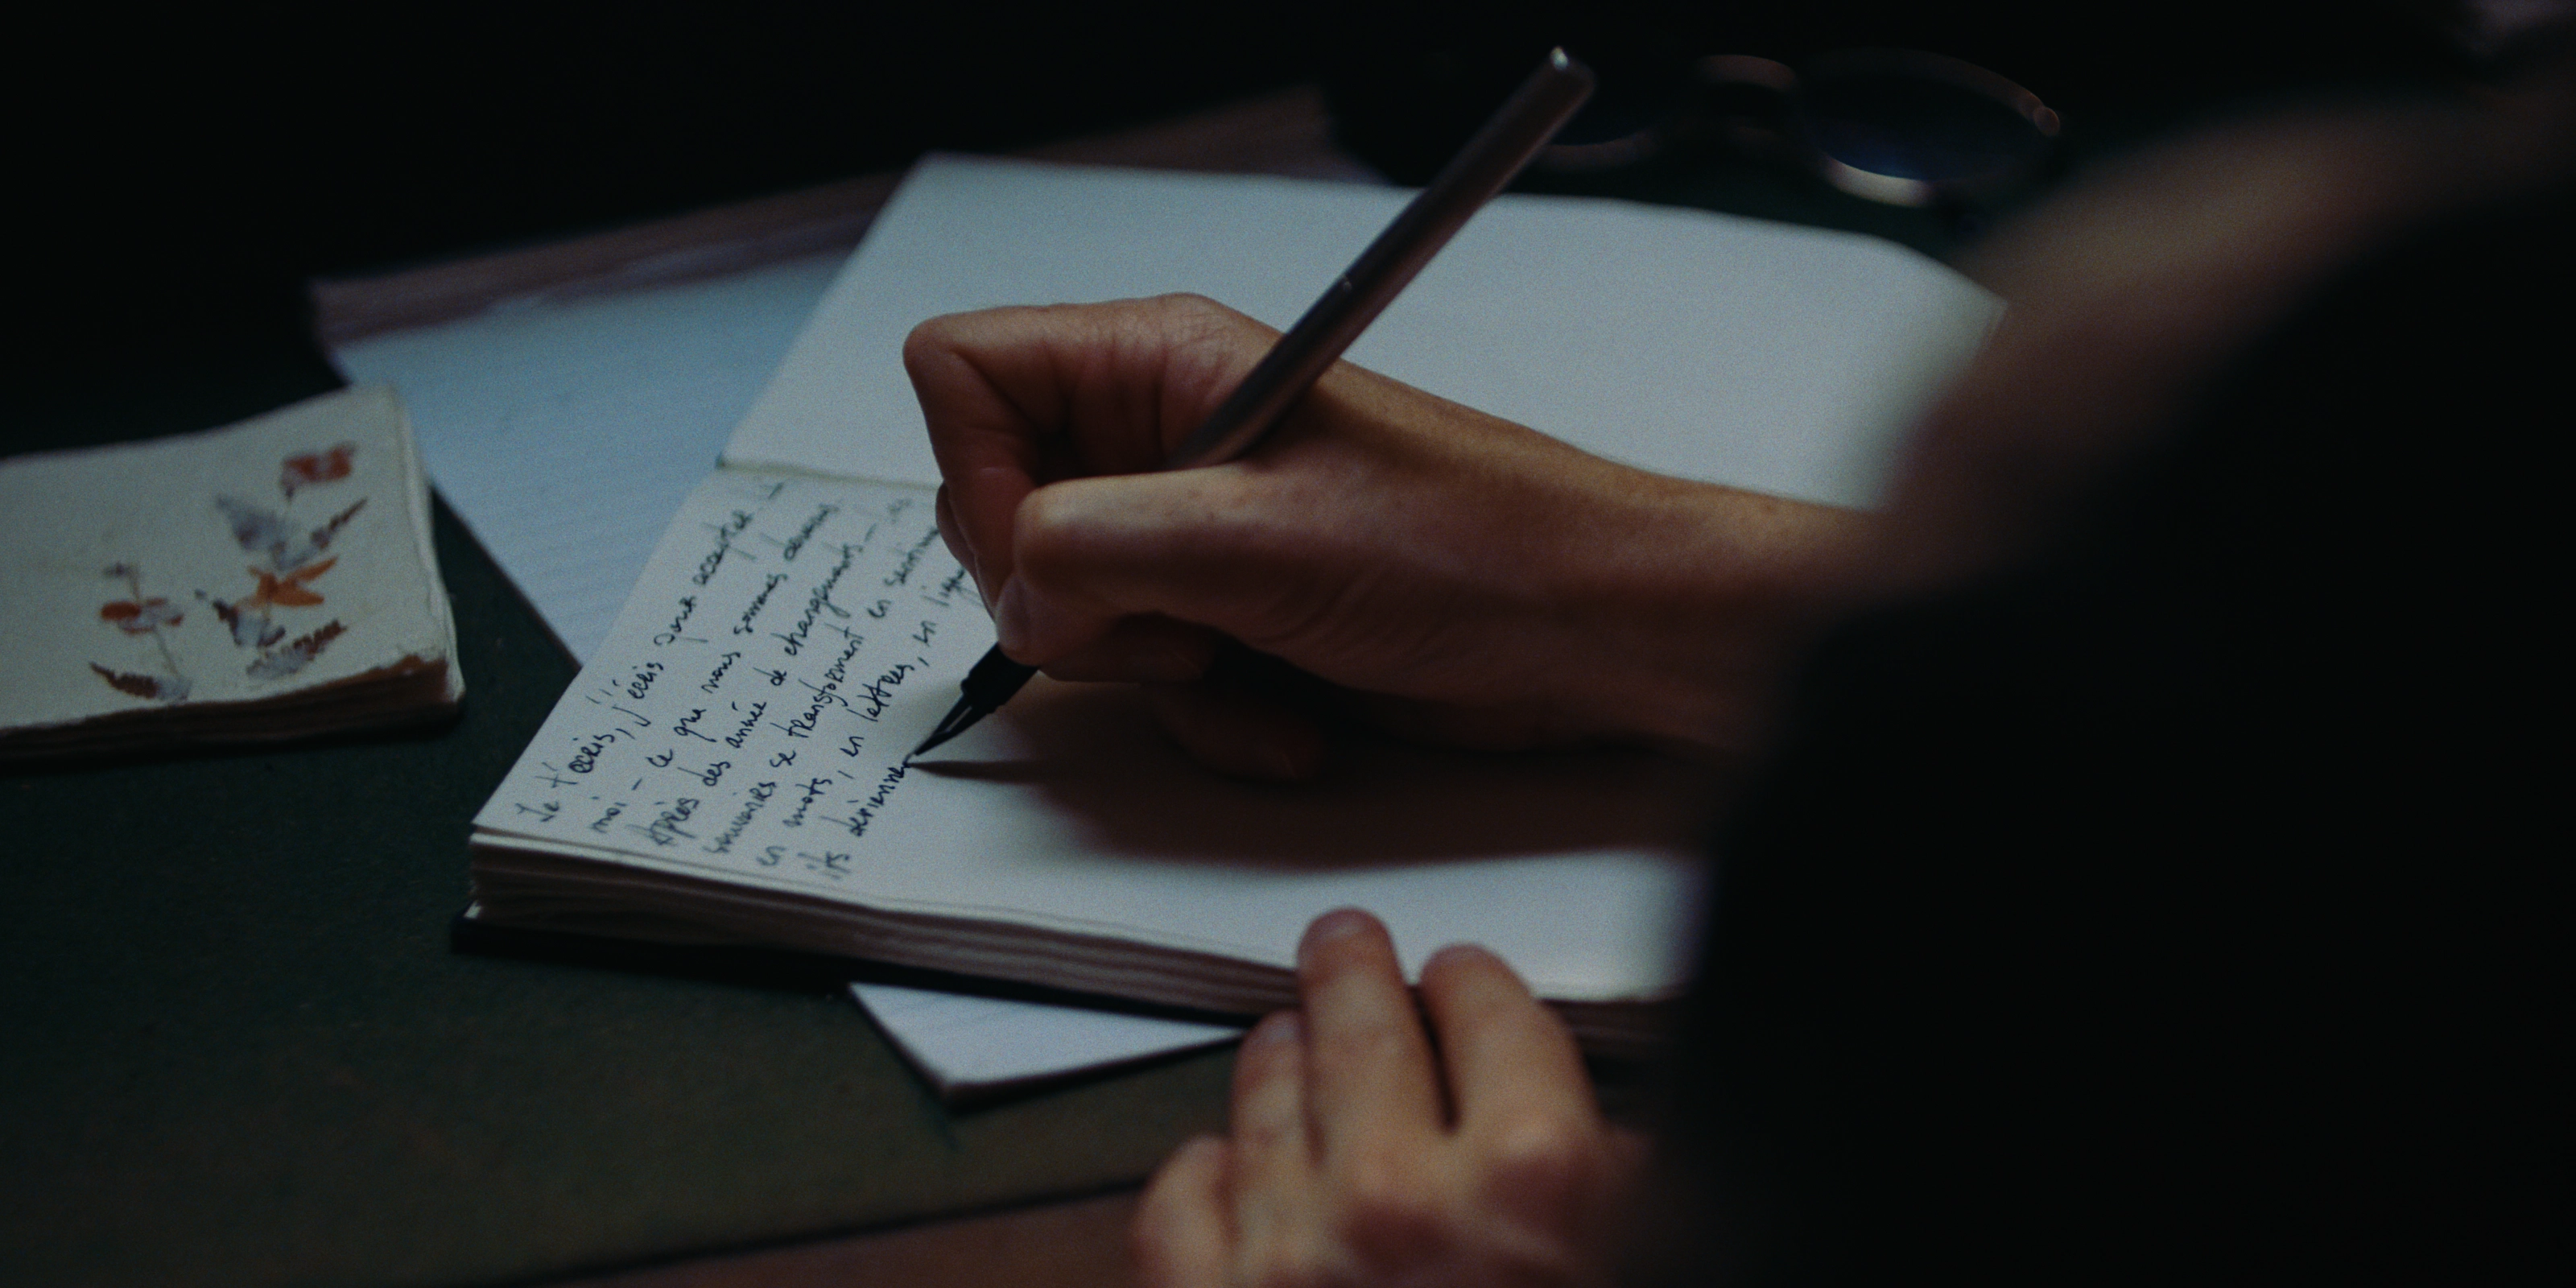 Je t'écris, j'écris pour accepter
moi - ce que nous sommes devenus.
Après des année de changements -
souvenirs se transforment en
en mots, en lettres, en
ils deviennen